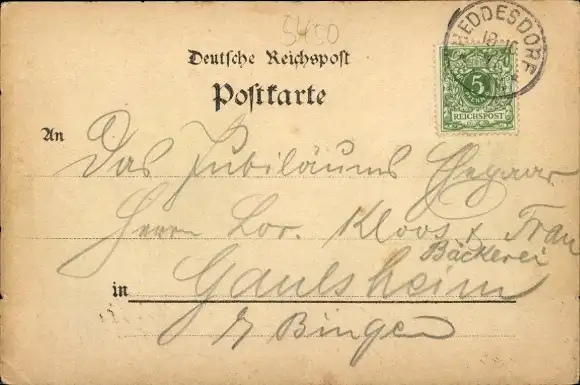 5450
Deutsche Reichspost
Postkarte
HEDDESDORF
5
REICHSPOST
An Das Jubiläums Ehepaar
Herrn Lor. Kloos & Frau
Bäckerei
in Gaulsheim
b/ Bingen